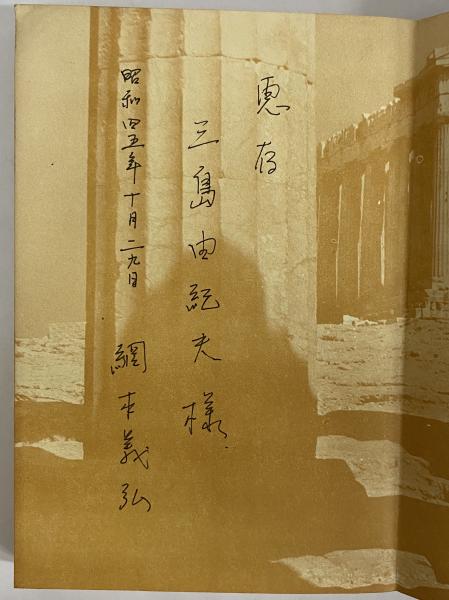 恵存
三島由紀夫様
昭和四五年十月二九日
綱本義弘